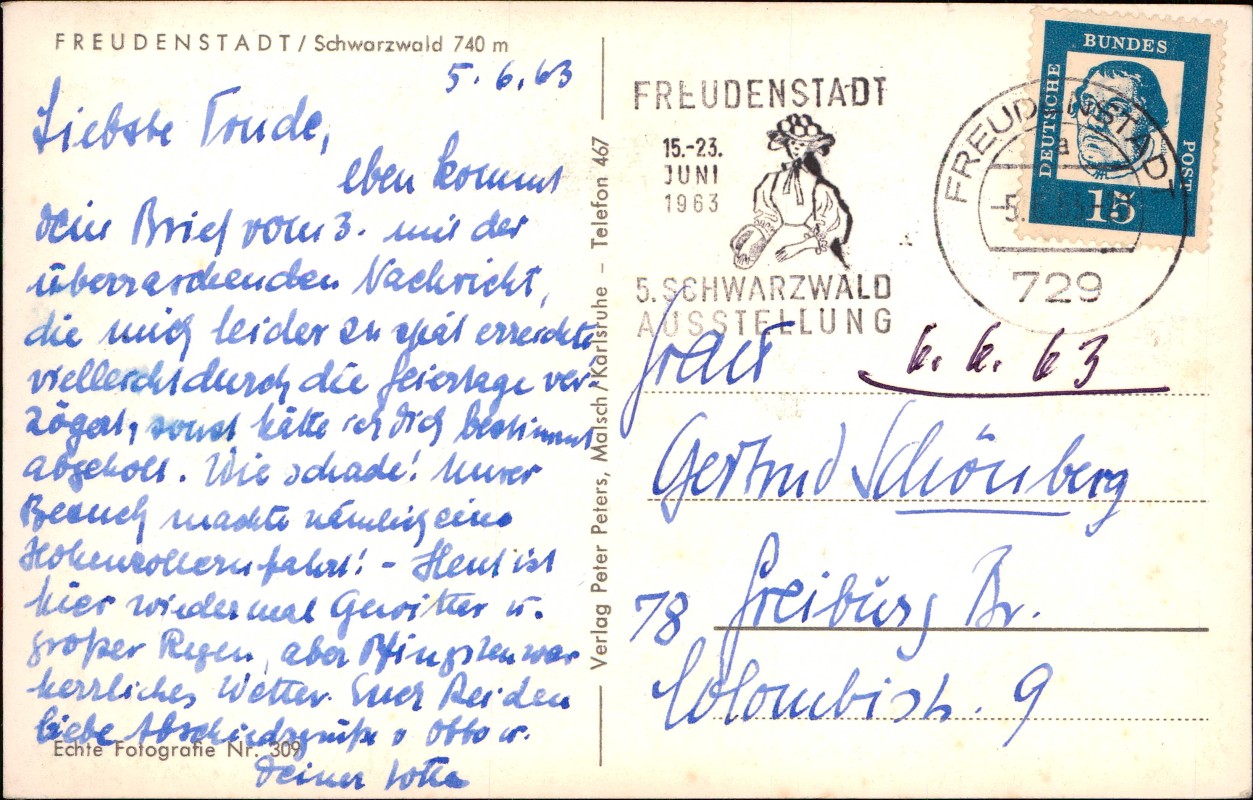 FREUDENSTADT / Schwarzwald 740 m
5.6.63
Liebste Trude,
eben kommt
dein Brief vom 3. mit der
überraschenden Nachricht,
die mich leider zu spät erreichte
vielleicht durch die Feiertage ver-
zögert, sonst hätte ich dich bestimmt
abgeholt. Wie schade! Unser
Besuch machte nämlich eine
Hohenzollernfahrt! - Heut ist
hier wieder mal Gewitter u.
großer Regen, aber Pfingsten war
herrliches Wetter. Euch Beiden
liebe Abschiedsgrüße v Otto u.
Deiner Lotte
Echte Fotografie Nr. 309
Verlag Peter Peters, Malsch/Karlsruhe – Telefon 467
FREUDENSTADT
15.-23.
JUNI
1963
5. SCHWARZWALD
AUSSTELLUNG
FREUDENSTADT
a
729
DEUTSCHE
BUNDES
POST
15
Frau
6.6.63
Gertrud Schönberg
78 Freiburg Br.
Colombistr. 9